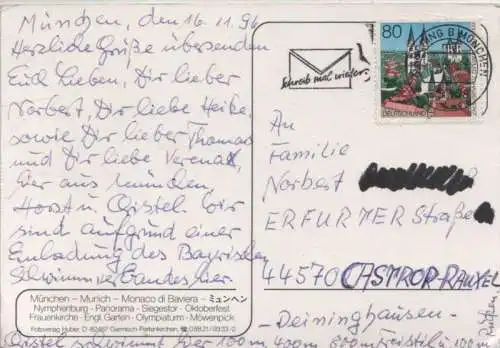 München, den 16.11.96
Herzliche Grüße übersenden
Euch Lieben, Dir lieber
Norbert, Dir liebe Heike,
sowie Dir lieber Thomas
und Dir liebe Verena,
hier aus München,
Horst u. Christel. Wir
sind aufgrund einer
Einladung des Bayrischen
Schwimmverbandes hier
München - Munich - Monaco di Baviera - ミュンヘン
Nymphenburg - Panorama - Siegestor - Oktoberfest
Frauenkirche - Engl. Garten - Olympiaturm - Mövenpick
Fotoverlag Huber, D-82467 Garmisch-Partenkirchen
Christel schwimmt hier 100m, 400m, 800m Freistil u. 100m
Schreib mal wieder
80
DEUTSCHLAND
MÜNCHEN
An
Familie
Norbert
ERFURTER Straße
44570 CASTROP-RAUXEL
- Deininghausen -